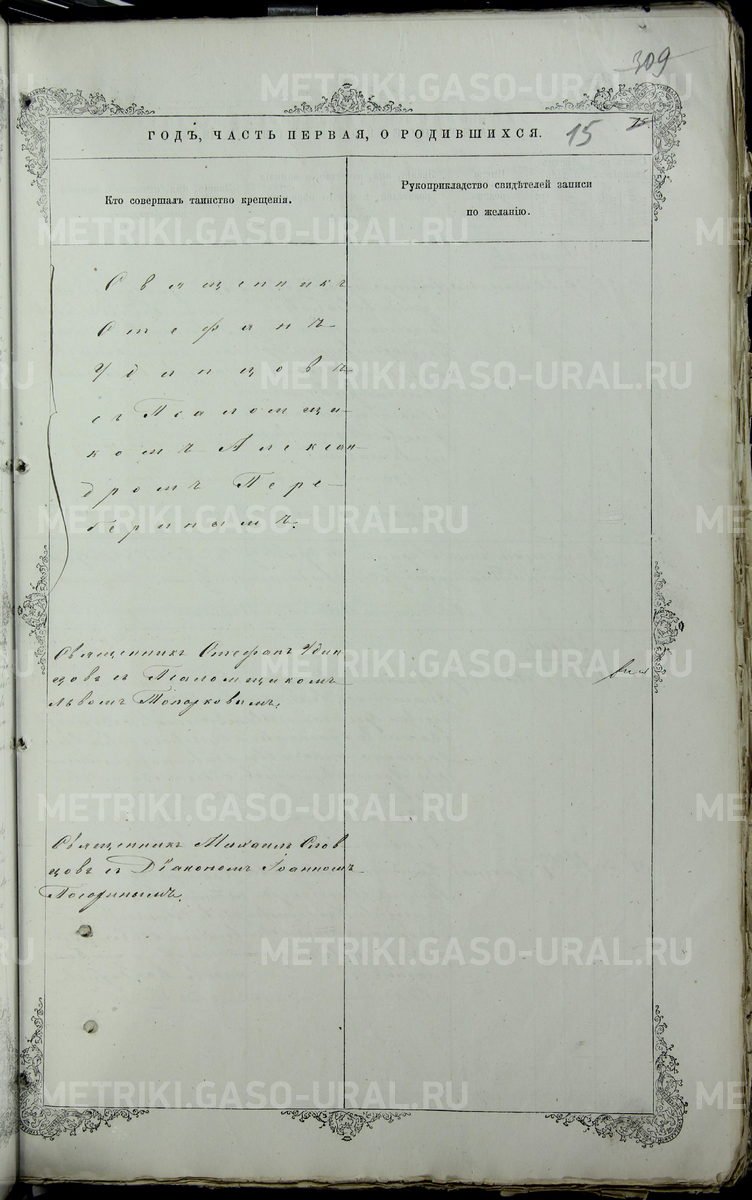 309
ГОДЪ, ЧАСТЬ ПЕРВАЯ, О РОДИВШИХСЯ.
15
Кто совершалъ таинство крещенія.
Рукоприкладство свидѣтелей записи
по желанію.
Священникъ
Стефанъ
Удинцовъ
съ Псаломщи-
комъ Алексан
дромъ Пере-
беринымъ.
Священникъ Стефанъ Удин
цовъ съ Псаломщикомъ
Львомъ Топорковымъ.
Священникъ Михаилъ Слов
цовъ съ Діакономъ Іоанномъ
METRIKI.GASO-URAL.RU